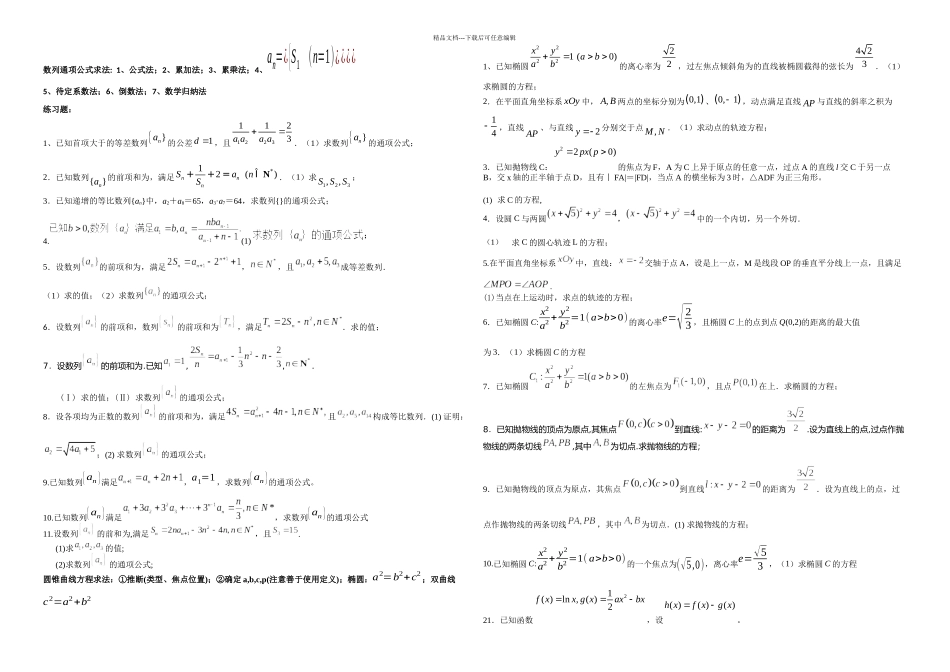 精品文档---下载后可任意编辑
数列通项公式求法: 1、公式法；2、累加法；3、累乘法；4、a_n=¿{S_1 (n=1)¿¿¿¿
5、待定系数法；6、倒数法；7、数学归纳法
练习题：
1、已知首项大于的等差数列{a_n}的公差d=1，且1/(a_1a_2)+1/(a_2a_3)=2/3．（1）求数列{a_n}的通项公式；
2．已知数列{a_n}的前项和为，满足S_n+1/S_n+2=a_n (nÎN*)．（1）求S_1,S_2,S_3；
3．已知递增的等比数列{a_n}中，a_2+a_8=65，a_3·a_7=64，求数列{}的通项公式；
4. 已知b>0,数列{a_n}满足a_1=b,a_n=nba_{n-1}/(a_{n-1}+n-1). (1)求数列{a_n}的通项公式；
5．设数列{a_n}的前项和为，满足2S_n=a_{n+1}-2^{n+1}+1，n∈N*，且a_1,a_2+5,a_3成等差数列．
（1）求的值；（2）求数列{a_n}的通项公式；
6．设数列{a_n}的前项和，数列{S_n}的前项和为{T_n}，满足T_n=2S_n-n²,n∈N*．求的值；
7．设数列{a_n}的前项和为.已知a_1=1，2S_n/n=a_{n+1}-1/3n²-n-2/3，n∈N*．
（Ⅰ）求的值；(Ⅱ) 求数列{a_n}的通项公式；
8．设各项均为正数的数列{a_n}的前项和为，满足4S_n=a²_{n+1}-4n-1,n∈N*,且a_2,a_5,a_14构成等比数列．(1) 证明：
a_2=√(4a_1+5)；(2) 求数列{a_n}的通项公式；
9.已知数列{a_n}满足a_{n+1}=a_n+2n+1，a_1=1，求数列{a_n}的通项公式。
10.已知数列{a_n}满足a_1+3a_2+3²a_3+⋯+3^{n-1}a_n=n/3,n∈N*，求数列{a_n}的通项公式
11.设数列{a_n}的前和为,满足S_n=2na_{n+1}-3n²-4n,n∈N*，且S_3=15．
(1)求a_1,a_2,a_3的值;
(2)求数列{a_n}的通项公式;
圆锥曲线方程求法：①惟断(类型、焦点位置)；②确定 a,b,c,p(注意善于使用定义)；椭圆：a²=b²+c²；双曲线
c²=a²+b²
1、已知椭圆x²/a²+y²/b²=1 (a>b>0)的离心率为√2/2，过左焦点倾斜角为的直线被椭圆截得的弦长为4√2/3．（1）
求椭圆的方程；
2．在平面直角坐标系xOy中，A,B两点的坐标分别为(0,1)、(0,-1)，动点满足直线AP与直线的斜率之积为
-1/4，直线AP、与直线y=-2分别交于点M,N．（1）求动点的轨迹方程；
3．已知抛物线 C：y²=2px(p>0)的焦点为 F，A 为 C 上异于原点的任意一点，过点 A 的直线 l 交 C 于另一点
B，交 x 轴的正半轴于点 D，且有丨 FA|=|FD|，当点 A 的横坐标为 3 时，△ADF 为正三角形。
(1) 求 C 的方程,
4．设圆 C 与两圆(x+√5)²+y²=4，(x-√5)²+y²=4中的一个内切，另一个外切．
（1） 求 C 的圆心轨迹 L 的方程；
5.在平面直角坐标系xOy中，直线：x=-2交轴于点 A，设是上一点，M 是线段 OP 的垂直平分线上一点，且满足
∠MPO=∠AOP．
(1)当点在上运动时，求点的轨迹的方程；
6．已知椭圆 C:x²/a²+y²/b²=1(a>b>0)的离心率e=√(2/3)，且椭圆 C 上的点到点 Q(0,2)的距离的最大值
为 3．（1）求椭圆 C 的方程
7．已知椭圆C_1:x²/a²+y²/b²=1(a>b>0)的左焦点为F_1(-1,0)，且点P(0,1)在上．求椭圆的方程；
8．已知抛物线的顶点为原点,其焦点F(0,c)(c>0)到直线:x-y-2=0的距离为3√2/2.设为直线上的点,过点作抛
物线的两条切线PA,PB,其中A,B为切点.求抛物线的方程;
9．已知抛物线的顶点为原点，其焦点F(0,c)(c>0)到直线l:x-y-2=0的距离为3√2/2．设为直线上的点，过
点作抛物线的两条线PA,PB，其中A,B为切点．(1) 求抛物线的方程；
10.已知椭圆 C:x²/a²+y²/b²=1(a>b>0)的一个焦点为(√5,0)，离心率e=√5/3，（1）求椭圆 C 的方程
21．已知函数f(x)=ln x,g(x)=1/2ax²-bx，设h(x)=f(x)-g(x)．